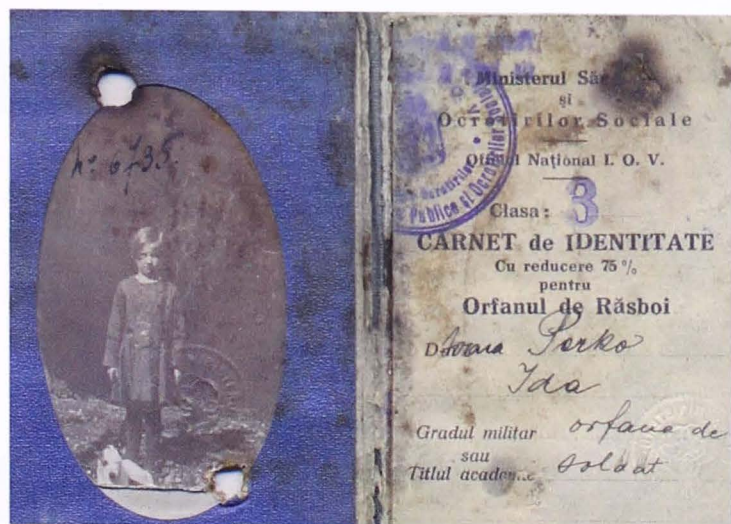 No 6735.
Ministerul
și
Ocrotirilor Sociale
Oficiul Național I. O. V.
Publice și Ocrotirilor
Clasa: 3
CARNET de IDENTITATE
Cu reducere 75%
pentru
Orfanul de Răsboi
Perko
Ida
Gradul militar orfana de
sau
Titlul academic soldat